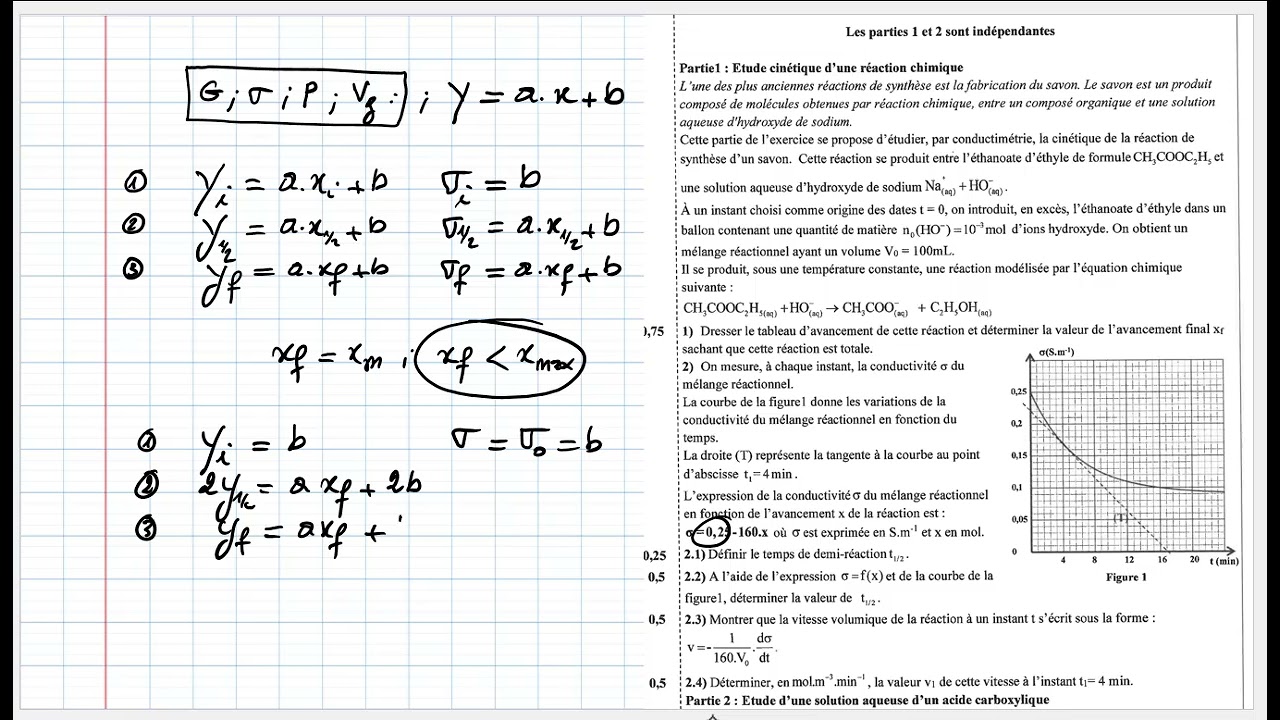 G ; σ ; P ; Vg : ; y = a.x + b
① yi = a.xi + b σi = b
② y1/2 = a.x1/2 + b σ1/2 = a.x1/2 + b
③ yf = a.xf + b σf = a.xf + b
xf = xm ; xf < xmax
① yi = b σ = σ0 = b
② 2y1/2 = a xf + 2b
③ yf = axf +
Les parties 1 et 2 sont indépendantes
Partie1 : Etude cinétique d'une réaction chimique
L'une des plus anciennes réactions de synthèse est la fabrication du savon. Le savon est un produit
composé de molécules obtenues par réaction chimique, entre un composé organique et une solution
aqueuse d'hydroxyde de sodium.
Cette partie de l'exercice se propose d'étudier, par conductimétrie, la cinétique de la réaction de
synthèse d'un savon. Cette réaction se produit entre l'éthanoate d'éthyle de formule CH₃COOC₂H₅ et
une solution aqueuse d'hydroxyde de sodium Na⁺(aq) + HO⁻(aq).
À un instant choisi comme origine des dates t = 0, on introduit, en excès, l'éthanoate d'éthyle dans un
ballon contenant une quantité de matière n₀(HO⁻) = 10⁻³ mol d'ions hydroxyde. On obtient un
mélange réactionnel ayant un volume V₀ = 100mL.
Il se produit, sous une température constante, une réaction modélisée par l'équation chimique
suivante :
CH₃COOC₂H₅(aq) + HO⁻(aq) → CH₃COO⁻(aq) + C₂H₅OH(aq)
0,75 1) Dresser le tableau d'avancement de cette réaction et déterminer la valeur de l'avancement final xf
sachant que cette réaction est totale.
2) On mesure, à chaque instant, la conductivité σ du
mélange réactionnel.
La courbe de la figure1 donne les variations de la
conductivité du mélange réactionnel en fonction du
temps.
La droite (T) représente la tangente à la courbe au point
d'abscisse t₁ = 4 min.
L'expression de la conductivité σ du mélange réactionnel
en fonction de l'avancement x de la réaction est :
σ = 0,25-160.x où σ est exprimée en S.m⁻¹ et x en mol.
0,25 2.1) Définir le temps de demi-réaction t1/2.
0,5 2.2) A l'aide de l'expression σ = f(x) et de la courbe de la
figure1, déterminer la valeur de t1/2.
σ(S.m⁻¹)
0,25
0,2
0,15
0,1
0,05
0
(T)
4 8 12 16 20 t (min)
Figure 1
0,5 2.3) Montrer que la vitesse volumique de la réaction à un instant t s'écrit sous la forme :
v = - 1/160.V₀ . dσ/dt.
0,5 2.4) Déterminer, en mol.m⁻³.min⁻¹, la valeur v₁ de cette vitesse à l'instant t₁= 4 min.
Partie 2 : Etude d'une solution aqueuse d'un acide carboxylique